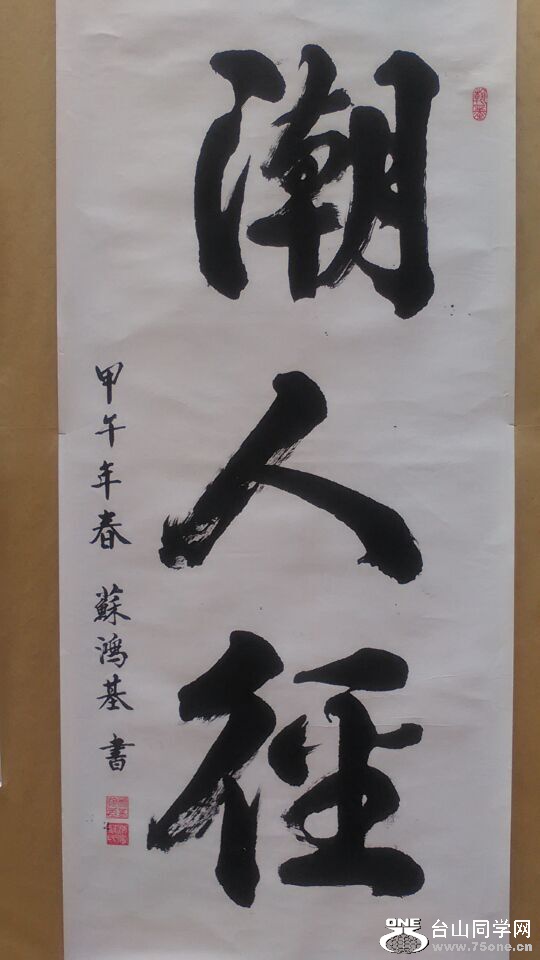 潮人径
甲午年春 蘇鴻基 書
ONE 台山同学网
www.75one.cn